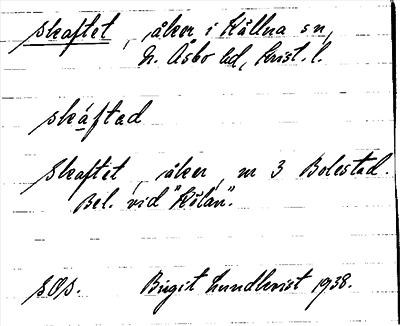 skaftet, åker i Källna sn,
N. Åsbo hd, Krist. l.
skáftad
Skaftet, åker, nr 3 Bolestad.
Bel. vid "Kölan".
s.o/s. Birgit Lundkvist 1938.